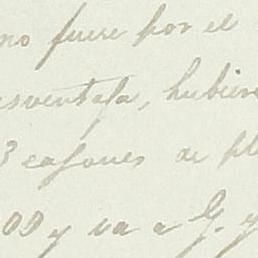 no fuere por el
esventaja, hubier
3 cajones de pl
00 y va a G. y